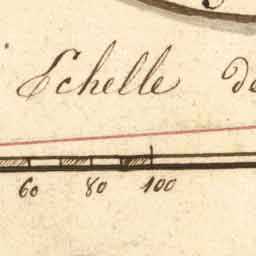 Echelle de
60 80 100